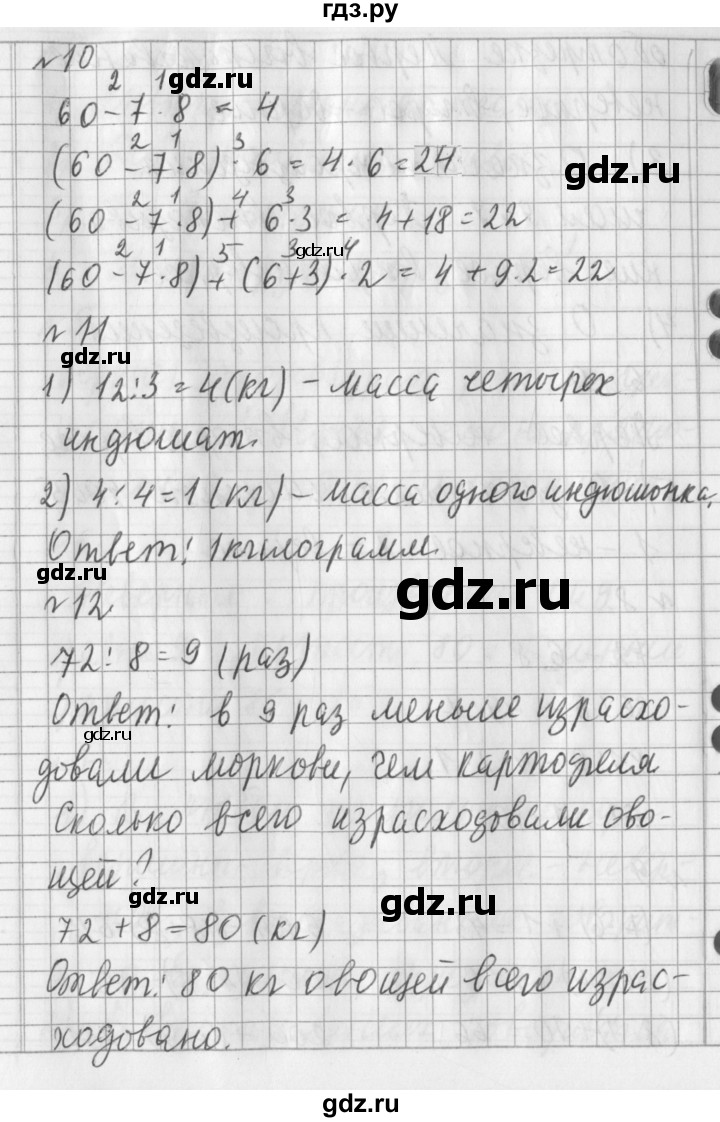 гдз.ру
№10
2 1
60 - 7 · 8 = 4
gdz.ru
2 1 3
(60 - 7 · 8) · 6 = 4 · 6 = 24
gdz.ru
2 1 4 3
(60 - 7 · 8) + 6 · 3 = 4 + 18 = 22
2 1 5 3 4
gdz.ru
(60 - 7 · 8) + (6 + 3) · 2 = 4 + 9 · 2 = 22
№11
gdz.ru
1) 12 : 3 = 4 (кг) – масса четырех
индюшат.
gdz.ru
2) 4 : 4 = 1 (кг) – масса одного индюшонка.
Ответ: 1 килограмм.
gdz.ru
gdz.ru
№12
72 : 8 = 9 (раз)
gdz.ru
Ответ: в 9 раз меньше израсхо-
gdz.ru
довали моркови, чем картофеля
Сколько всего израсходовали ово-
щей?
gdz.ru
gdz.ru
72 + 8 = 80 (кг)
Ответ: 80 кг овощей всего израс-
gdz.ru
ходовано.
gdz.ru